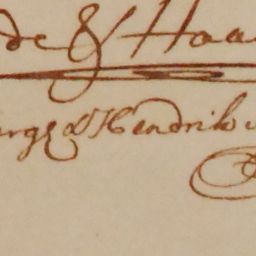 de & Haa
ergs & Hendrik